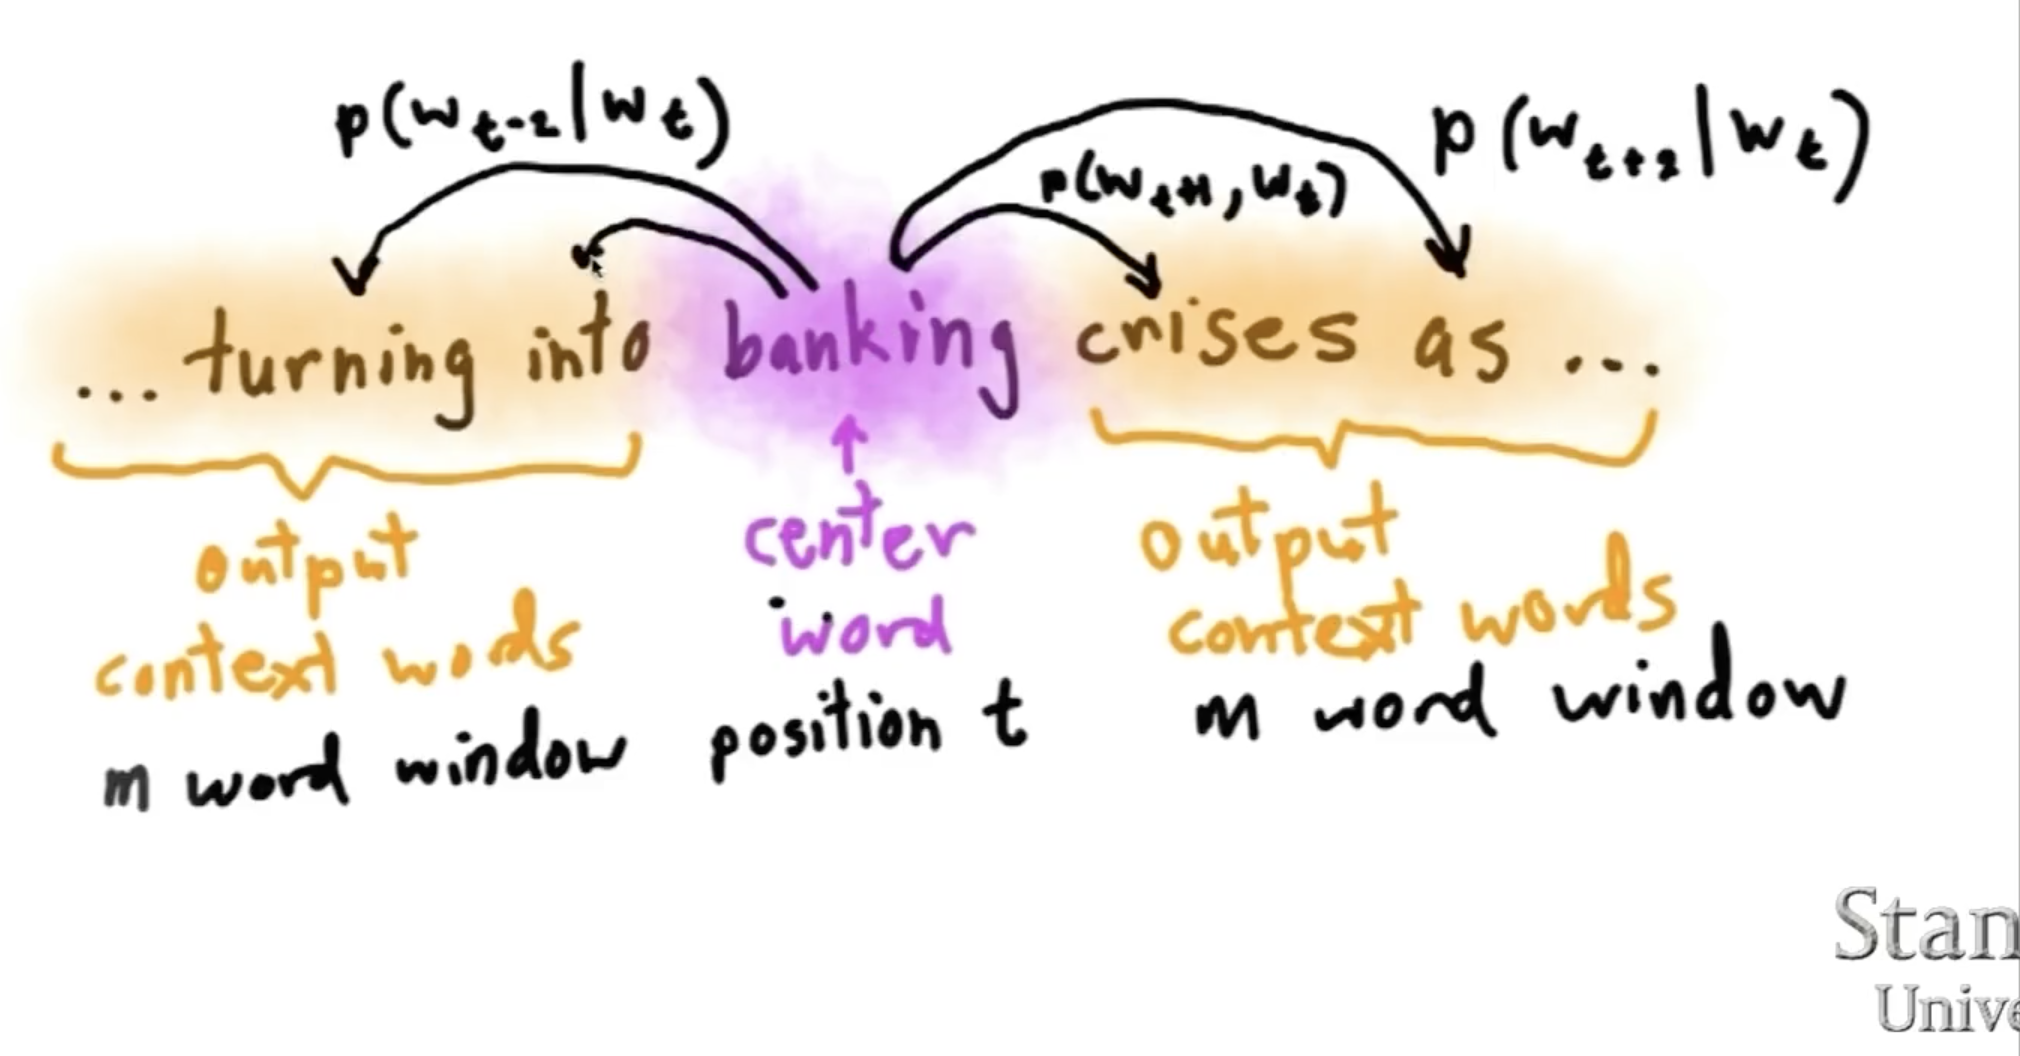 p(wt-2|wt)
p(wt+1, wt)
p(wt+2|wt)
... turning into banking crises as ...
output
context words
m word window
center
word
position t
output
context words
m word window
Stan
Unive